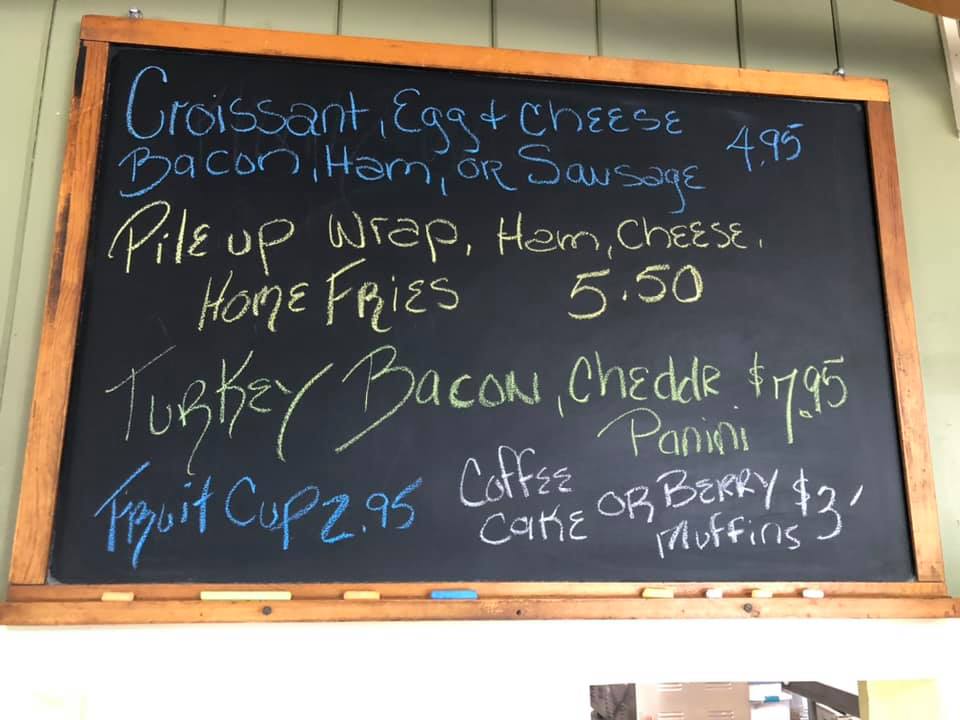 Croissant, Egg + Cheese
Bacon, Ham, or Sausage 4.95
Pile up Wrap, Ham, Cheese,
Home Fries 5.50
Turkey Bacon, Cheddr $7.95
Panini
Fruit Cup 2.95
Coffee Cake or Berry Muffins $3